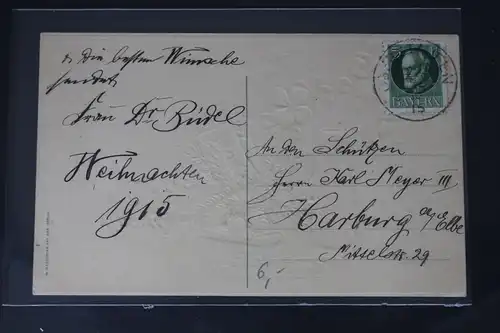 Die besten Wünsche
sendet
Frau Dr Büdel
Weihnachten
1915
An den Schützen
Herrn Karl Meyer III
Harburg a/Elbe
Mittelstr. 29
BAYERN
15
6,-